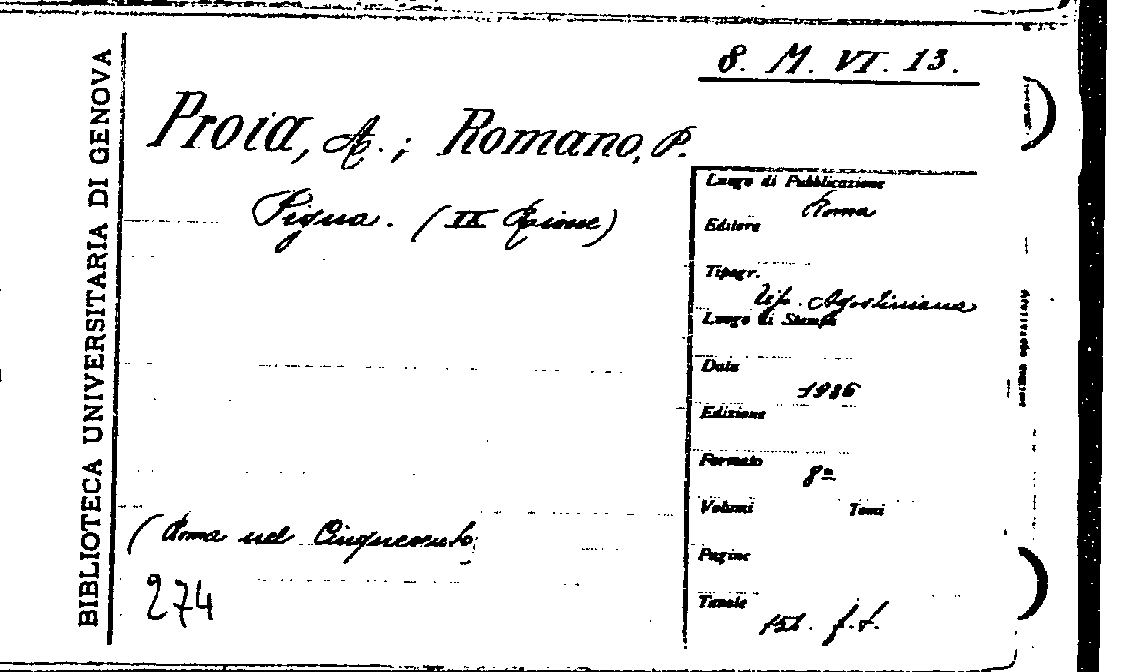 BIBLIOTECA UNIVERSITARIA DI GENOVA
8. M. VI. 13.
Proia, A.; Romano, P.
Pigna. (IX Rione)
Luogo di Pubblicazione
Roma
Editore
Tipogr.
Tip. Agostiniana
Luogo di Stampa
Data
1936
Edizione
Formato
8º
Volumi Tomi
Pagine
Tavole
f.t.
(Roma nel Cinquecento
274